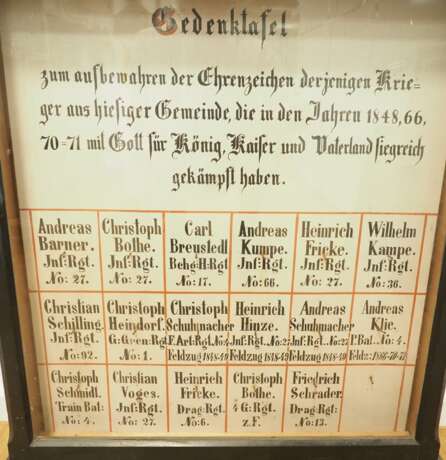 Gedenktafel
zum aufbewahren der Ehrenzeichen derjenigen Krie=
ger aus hiesiger Gemeinde, die in den Jahren 1848, 66,
70=71 mit Gott für König, Kaiser und Vaterland siegreich
gekämpft haben.
Andreas
Barner.
Inf: Rgt.
No: 27.
Christoph
Bothe.
Inf: Rgt.
No: 27.
Carl
Breystedt
No: 17.
Andreas
Kumpe.
Inf: Rgt.
No: 66.
Heinrich
Fricke.
Inf: Rgt.
No: 27.
Wilhelm
Kampe.
Inf: Rgt.
No: 36.
Christian
Schilling.
Inf: Rgt.
No: 92.
Christoph
Heindorf.
No: 1.
Christoph
Schuhmacher
F. Art: Rgt. No: 4
Feldzug 1848-49
Heinrich
Hinze.
Inf: Rgt. No: 27
Feldzug 1848-49
Andreas
Schuhmacher
Inf: Rgt. No: 27
Feldzug 1848-49
Andreas
Klie.
P. Bat.. No: 4.
Feldz: 1866-70-71
Christoph
Schmidt.
Train Bat:
No: 4.
Christian
Voges.
Inf: Rgt.
No: 27.
Heinrich
Fricke.
Drag: Rgt:
No: 6.
Christoph
Bothe.
4 G: Rgt:
z. F.
Friedrich
Schrader.
Drag: Rgt:
No: 13.